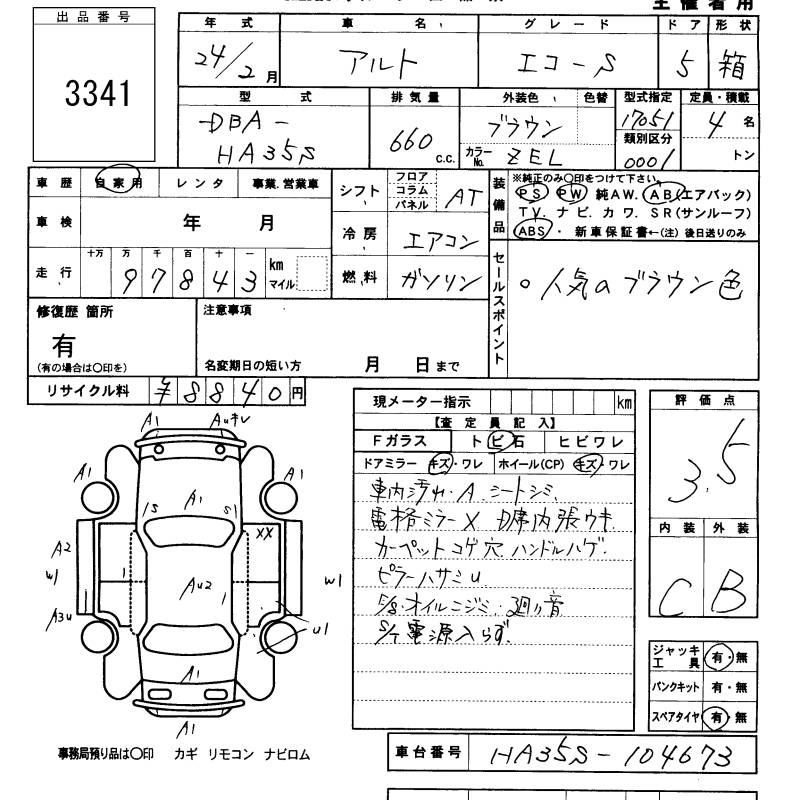 主催者用
出品番号
3341
年式 車名 グレード ドア 形状
24/2月 アルト エコ-S 5 箱
型式 排気量 外装色 色替 型式指定 定員・積載
DBA-
HA35S
660 C.C.
ブラウン
カラーNo. ZEL
17051
類別区分
0001
4名
トン
車歴 自家用 レンタ 事業.営業車
車検 年 月
走行 十万 万 千 百 十 一
97843 km マイル
シフト フロア コラム パネル AT
冷房 エアコン
燃料 ガソリン
装備品
※純正のみ〇印をつけて下さい。
PS PW 純AW. AB(エアバック)
TV. ナビ. カワ. SR(サンルーフ)
ABS・ 新車保証書←(注) 後日送りのみ
セールスポイント
○人気のブラウン色
修復歴 箇所
有
(有の場合は〇印を)
注意事項
名変期日の短い方 月 日まで
リサイクル料 ¥8840円
A1 Auキレ
A1 A1
A1
1S S1
A2 XX
W1 1 Au2 1 W1
A3u U1
A1
A1
事務局預り品は〇印 カギ リモコン ナビロム
現メーター指示 km
【査定員記入】
Fガラス トビ石 ヒビワレ
ドアミラー キズ・ワレ ホイール(CP) キズ・ワレ
車内汚れ・A シートシミ
電格ミラーX D席内張ウキ
カーペットコゲ穴 ハンドルハゲ.
ピラーハサミU
E/g・オイルニジミ・廻り音
S/T電源入らず.
評価点
3.5
内装 外装
C B
ジャッキ工具 有・無
パンクキット 有・無
スペアタイヤ 有・無
車台番号 HA35S-104673